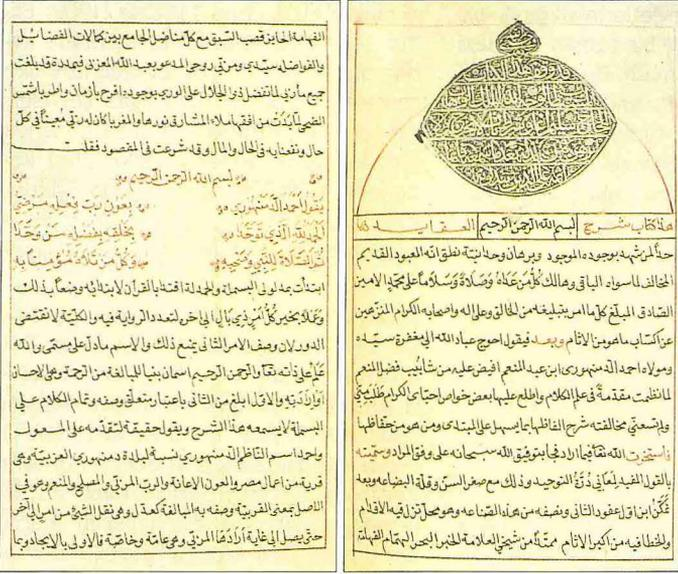 هذا كتاب شرح بسم الله الرحمن الرحيم العقايد
حمداً لمن شهد بوجوده الموجود وبرهان وحدانيته نطق انه العبود القديم
المخالف لما سواه الباقي وهالك كل من عداه وصلاة وسلاماً على محمد الامين
الصادق المبلغ كل ما امر بتبليغه من الخالق وعلى اله واصحابه الكرام المنزهين
عن اكتساب ما هو من الاثام وبعد فيقول احوج عباد الله الى مغفرة سيده
ومولاه احمد الدمنهوري ابن عبد المنعم افيض عليه من شابيب فضل المنعم
لما نظمت مقدمة في علم الكلام واطلع عليها بعض خواص احبائي الكرام طلب مني
ولم تسعني مخالفته شرح الفاظها بما يسهل على المبتدى ومن هو من حفاظها
فاستخرت الله تعالى فيما اراد فجا بتوفيق الله سبحانه على وفق المراد وسميته
بالقول المفيد لمعاني درة التوحيد وذلك مع صغر السن وقلة البضاعه وبعد
تمكن ابن اول عقود الثاني ونصفه من هذه الصناعه وهو محل تزل فيه الاقدام
والخطا فيه من اكبر الاثام ممتداً من شيخي العلامة الحبر البحر الهمام الفهامة
الفهامة الحايز قصب السبق مع كل مناضل الجامع بين كمالات الفضايل
والفواضل سيدي ومربي روحي المدعو بعبد الله المغربي فبمدده قد بلغت
جميع مأربي لما تفضل ذو الجلال على الورى بوجوده افرح بأزمان واطر يا شمس
الضحى لما بدت من افقها ملاء المشارق نورها والمغربا كان له ربي معيناً في كل
حال ونفعنا به في الحال والمال وقد شرعت في المقصود فقلت
بسم الله الرحمن الرحيم
يقول أحمد الدمنهوري بعون رب فعله مرضي
الحمد لله الذي توحدا بخلقه بفضله من وحدا
ثم الصلاة للنبي وصحبه وكل من تلاه مؤمناً به
ابتدأت بمدلولى البسملة والحمدلة اقتدا بالقرآن لابتدائه وضعاً بذلك
وعملا بخبر كل امر ذي بال الى اخر لتعدد الرواية فيه والكلية لا تقتضي
الدور لان وصف الامر الثانى يمنع ذلك والاسم ما دل على مسمى والله
علم على ذاته تعالى والرحمن الرحيم اسمان بنيا للمبالغة من الرحمة وهي الاحسان
او ارادته والاول ابلغ من الثانى باعتبار متعلق وصفه وتمام الكلام على
البسملة لا يسعه هذا الشرح ويقول حقيقة لتقدمه على المعول
واحمد اسم الناظم الدمنهوري نسبة لبلدة دمنهوري العربية وهى
قرية من اعمال مصر والعون الاعانة والرب المربي والمصلح والمنعم وهو في
الاصل بمعنى التربية وصف به المبالغة كعدل وهو نقل الشئ من امر الى اخر
حتى يصل الى غاية أرادها المربى وهى عامة وخاصة فالاولى بالايجاد وبما